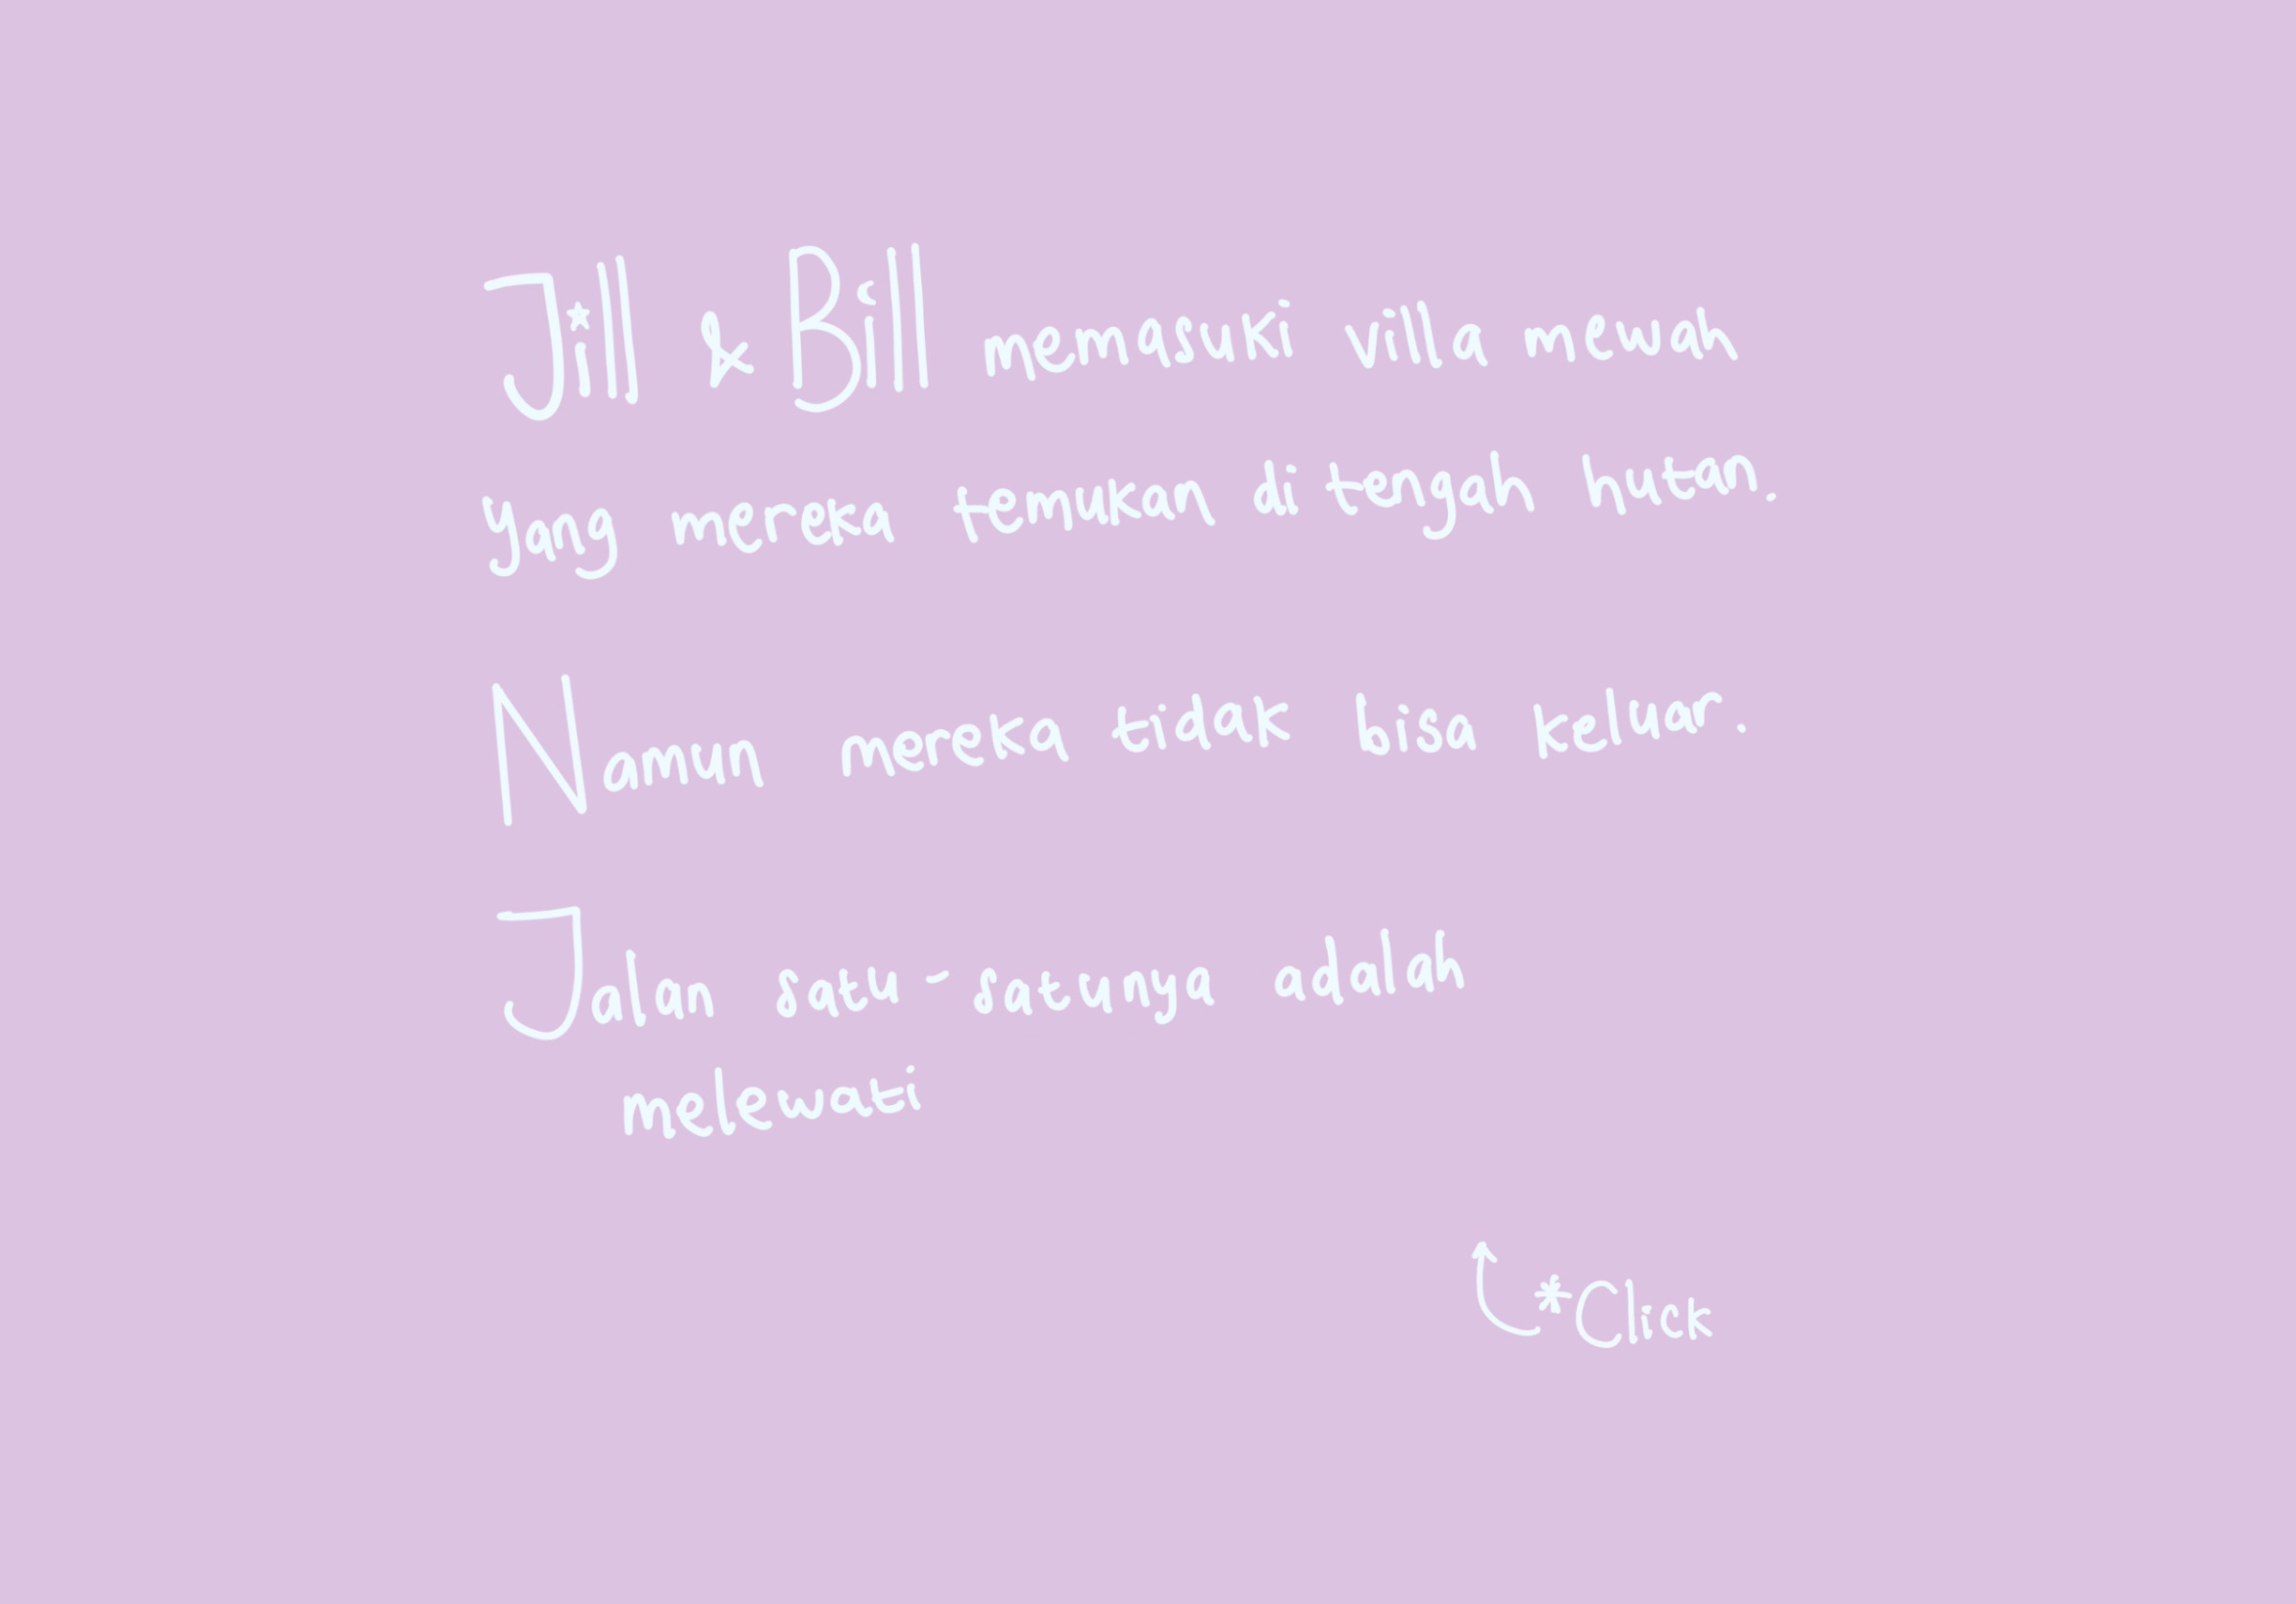 Jill & Bill memasuki villa mewah
yang mereka temukan di tengah hutan.
Namun mereka tidak bisa keluar.
Jalan satu-satunya adalah
melewati
*Click